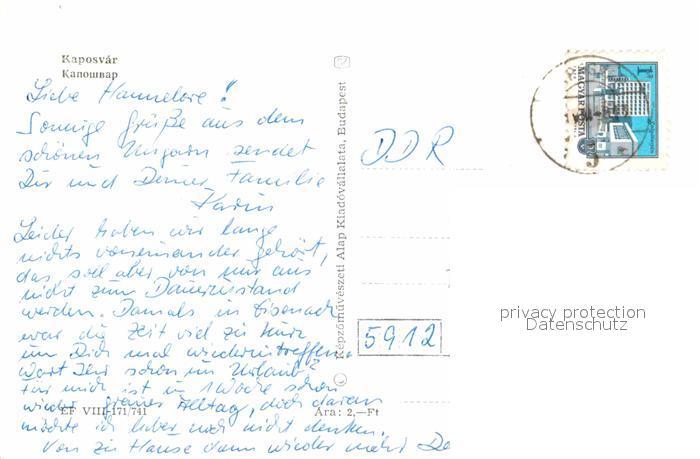 Kaposvár
Капошвар
Liebe Hannelore!
Sonnige Grüße aus dem
schönen Ungarn sendet
Dir und Deiner Familie
Karin
Leider haben wir lange
nichts voneinander gehört,
das soll aber von mir aus
nicht zum Dauerzustand
werden. Damals in Eisenach
war die Zeit viel zu kurz
um Dich mal wiederzutreffen.
Wart Ihr schon im Urlaub?
Für mich ist in 1 Woche schon
wieder grauer Alltag, doch daran
möchte ich lieber noch nicht denken.
Von zu Hause dann wieder mehr De
EF VIII-171/741
Ára: 2,—Ft
Képzőművészeti Alap Kiadóvállalata, Budapest
DDR
5912
1 Ft
MAGYAR POSTA
privacy protection
Datenschutz